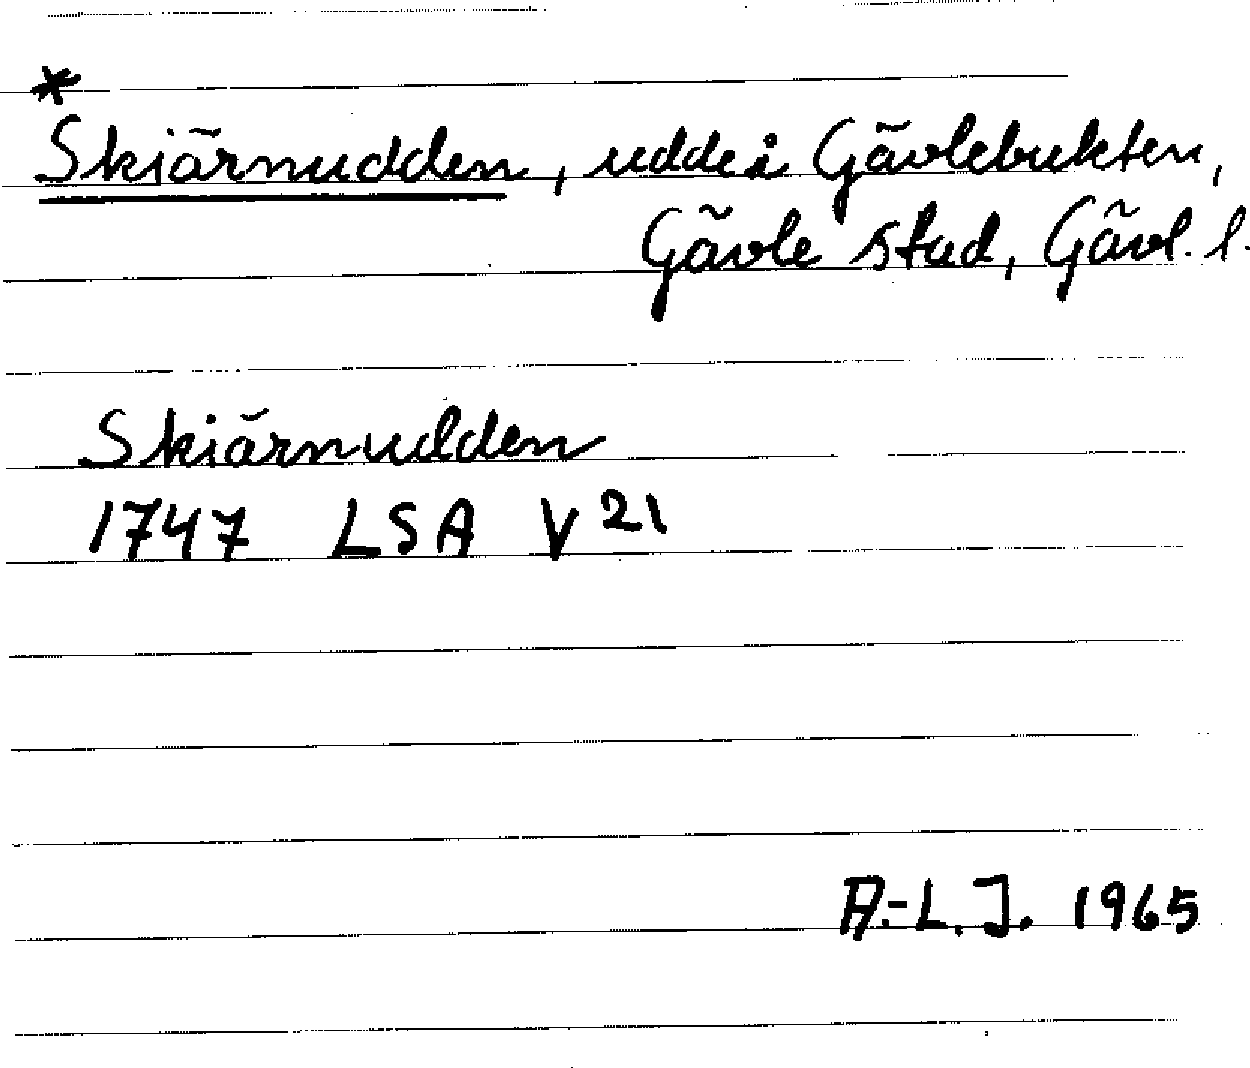 *
Skiärnudden, udde i Gävlebukten,
Gävle stad, Gävl. l.
Skiärnudden
1747 LSA V 21
A.-L. J. 1965